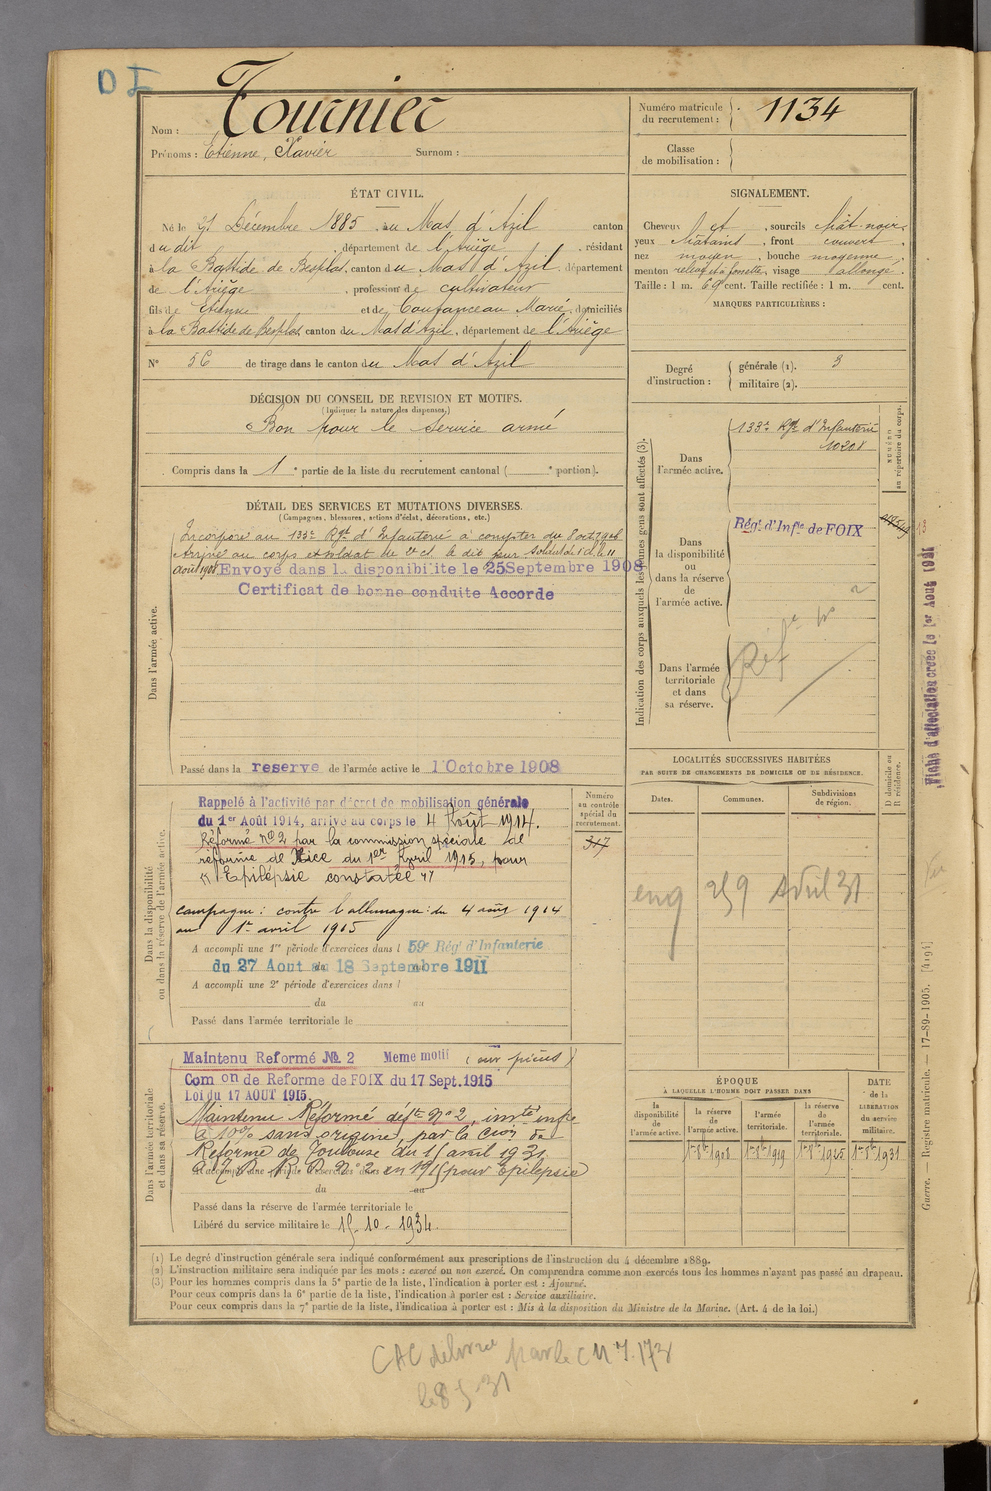 D I
Nom : Tournier
Prénoms : Etienne, Xavier Surnom :
Numéro matricule du recrutement : 1134
Classe de mobilisation :
ÉTAT CIVIL.
Né le 21 Décembre 1885, au Mas d'Azil canton
du dit, département de l'Ariège, résidant
à la Bastide de Besplas, canton du Mas d'Azil, département
de l'Ariège, profession de cultivateur
fils de Etienne et de Coufanceau Marie, domiciliés
à la Bastide de Besplas, canton du Mas d'Azil, département de l'Ariège
N° 56 de tirage dans le canton du Mas d'Azil
SIGNALEMENT.
Cheveux et, sourcils chât-noir,
yeux châtains, front couvert,
nez moyen, bouche moyenne,
menton relevé et à fossette, visage allongé.
Taille : 1 m. 69 cent. Taille rectifiée : 1 m. cent.
MARQUES PARTICULIÈRES :
Degré d'instruction : générale (1). 3
militaire (2).
DÉCISION DU CONSEIL DE REVISION ET MOTIFS.
(Indiquer la nature des dispenses.)
Bon pour le service armé
Compris dans la 1e partie de la liste du recrutement cantonal ( e portion).
DÉTAIL DES SERVICES ET MUTATIONS DIVERSES.
(Campagnes, blessures, actions d'éclat, décorations, etc.)
Incorporé au 133e Rgt d'Infanterie à compter du 8 oct 1906
Arrivé au corps et soldat de 2e cl. le dit jour soldat de 1e cl. le 11
août 1908. Envoyé dans la disponibilite le 25 Septembre 1908
Certificat de bonne conduite Accorde
Dans l'armée active.
Passé dans la reserve de l'armée active le 1 Octobre 1908
Indication des corps auxquels les jeunes gens sont affectés (3).
NUMÉRO au répertoire du corps.
Dans l'armée active.
133e Rgt d'Infanterie
10208
Dans la disponibilité ou dans la réserve de l'armée active.
Régt d'Infie de FOIX
Dans l'armée territoriale et dans sa réserve.
Réf n° 2
Fiche d'affectation créée le 1er Août 1921
LOCALITÉS SUCCESSIVES HABITÉES
PAR SUITE DE CHANGEMENTS DE DOMICILE OU DE RÉSIDENCE.
Dates. Communes. Subdivisions de région.
D domicile ou R résidence.
eng 259 Avril 31
Dans la disponibilité ou dans la réserve de l'armée active.
Numéro au contrôle spécial du recrutement.
317
Rappelé à l'activité par décret de mobilisation générale
du 1er Août 1914, arrivé au corps le 4 Août 1914.
Réformé n°2 par la commission spéciale de
réforme de Nice du 1er Avril 1915, pour
"Epilepsie constatée"
campagne : contre l'allemagne : du 4 août 1914
au 1er avril 1915
A accompli une 1re période d'exercices dans l 59e Rég' d'Infanterie
du 27 Aout au 18 Septembre 1911
A accompli une 2e période d'exercices dans l
du au
Passé dans l'armée territoriale le
Dans l'armée territoriale et dans sa réserve.
Maintenu Reformé № 2 Meme motif (sur pièces)
Comon de Reforme de FOIX du 17 Sept. 1915
Loi du 17 AOUT 1915.
Maintenu Réformé déft n°2, invté infre
à 10% sans origine, par la Cion de
Réforme de Toulouse du 15 avril 1931.
R D n°2 en 1915 pour Epilepsie
du au
Passé dans la réserve de l'armée territoriale le
Libéré du service militaire le 15-10-1934.
ÉPOQUE
À LAQUELLE L'HOMME DOIT PASSER DANS
la disponibilité de l'armée active. la réserve de l'armée active. l'armée territoriale. la réserve de l'armée territoriale.
DATE de la LIBÉRATION du service militaire.
1er 8bre 1908 1er 8bre 1919 1er 8bre 1925 1er 8bre 1931
Guerre. — Registre matricule. — 17-89-1905. [4194]
(1) Le degré d'instruction générale sera indiqué conformément aux prescriptions de l'instruction du 4 décembre 1889.
(2) L'instruction militaire sera indiquée par les mots : exercé ou non exercé. On comprendra comme non exercés tous les hommes n'ayant pas passé au drapeau.
(3) Pour les hommes compris dans la 5e partie de la liste, l'indication à porter est : Ajourné.
Pour ceux compris dans la 6e partie de la liste, l'indication à porter est : Service auxiliaire.
Pour ceux compris dans la 7e partie de la liste, l'indication à porter est : Mis à la disposition du Ministre de la Marine. (Art. 4 de la loi.)
CAC délivrée par le C M
le 8 5-31